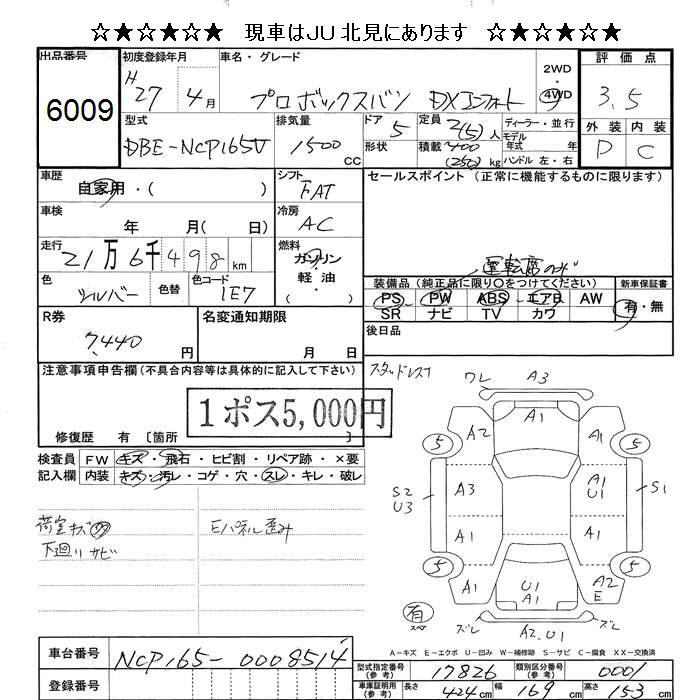 ☆★☆★☆★ 現車はJU北見にあります ☆★☆★☆★
出品番号
6009
初度登録年月
H
27 4月
車名・グレード
プロボックスバン DXコンフォート
2WD
・
4WD
評価点
3.5
外装 内装
D C
型式
DBE-NCP165V
排気量
1500
CC
ドア
5
形状
定員
2(5)人
積載 400
(250)kg
ディーラー・並行
モデル
年式 年
ハンドル 左・右
車歴
自家用・( )
シフト
FAT
車検
年 月( 日)
冷房
AC
走行
21万6千498km
燃料
ガソリン
軽・油
( )
色
シルバー
色替
色コード
1E7
セールスポイント(正常に機能するものに限ります)
運転席のみ
装備品(純正品に限り○をつけてください)
PS PW ABS エアB AW
SR ナビ TV カワ
新車保証書
有・無
R券
7,440
円
名変通知期限
月 日
後日品
スタッドレス
注意事項申告欄(不具合内容等は具体的に記入して下さい)
1ポス5,000円
修復歴 有 〔箇所 〕
検査員
記入欄
FW キズ・飛石・ヒビ割・リペア跡・×要
内装 キズ・汚レ・コゲ・穴・スレ・キレ・破レ
荷室キズ
Eパネル歪み
下廻りサビ
ワレ A3
A1
A2 A1
5 5
A3 A1
U1
S2
U3
S1
A1 A1
5 5
A1 U1
A1 A2
E
有
スペア
ズレ ズレ
A2.U1
A-キズ E-エクボ U-凹み W-補修跡 S-サビ C-腐食 XX-交換済
車台番号
NCP165-0008514
登録番号
型式指定番号
(参考)
17826
類別区分番号
(参考)
0001
車庫証明用
(参考)
長さ 424cm 幅 169cm 高さ 153cm